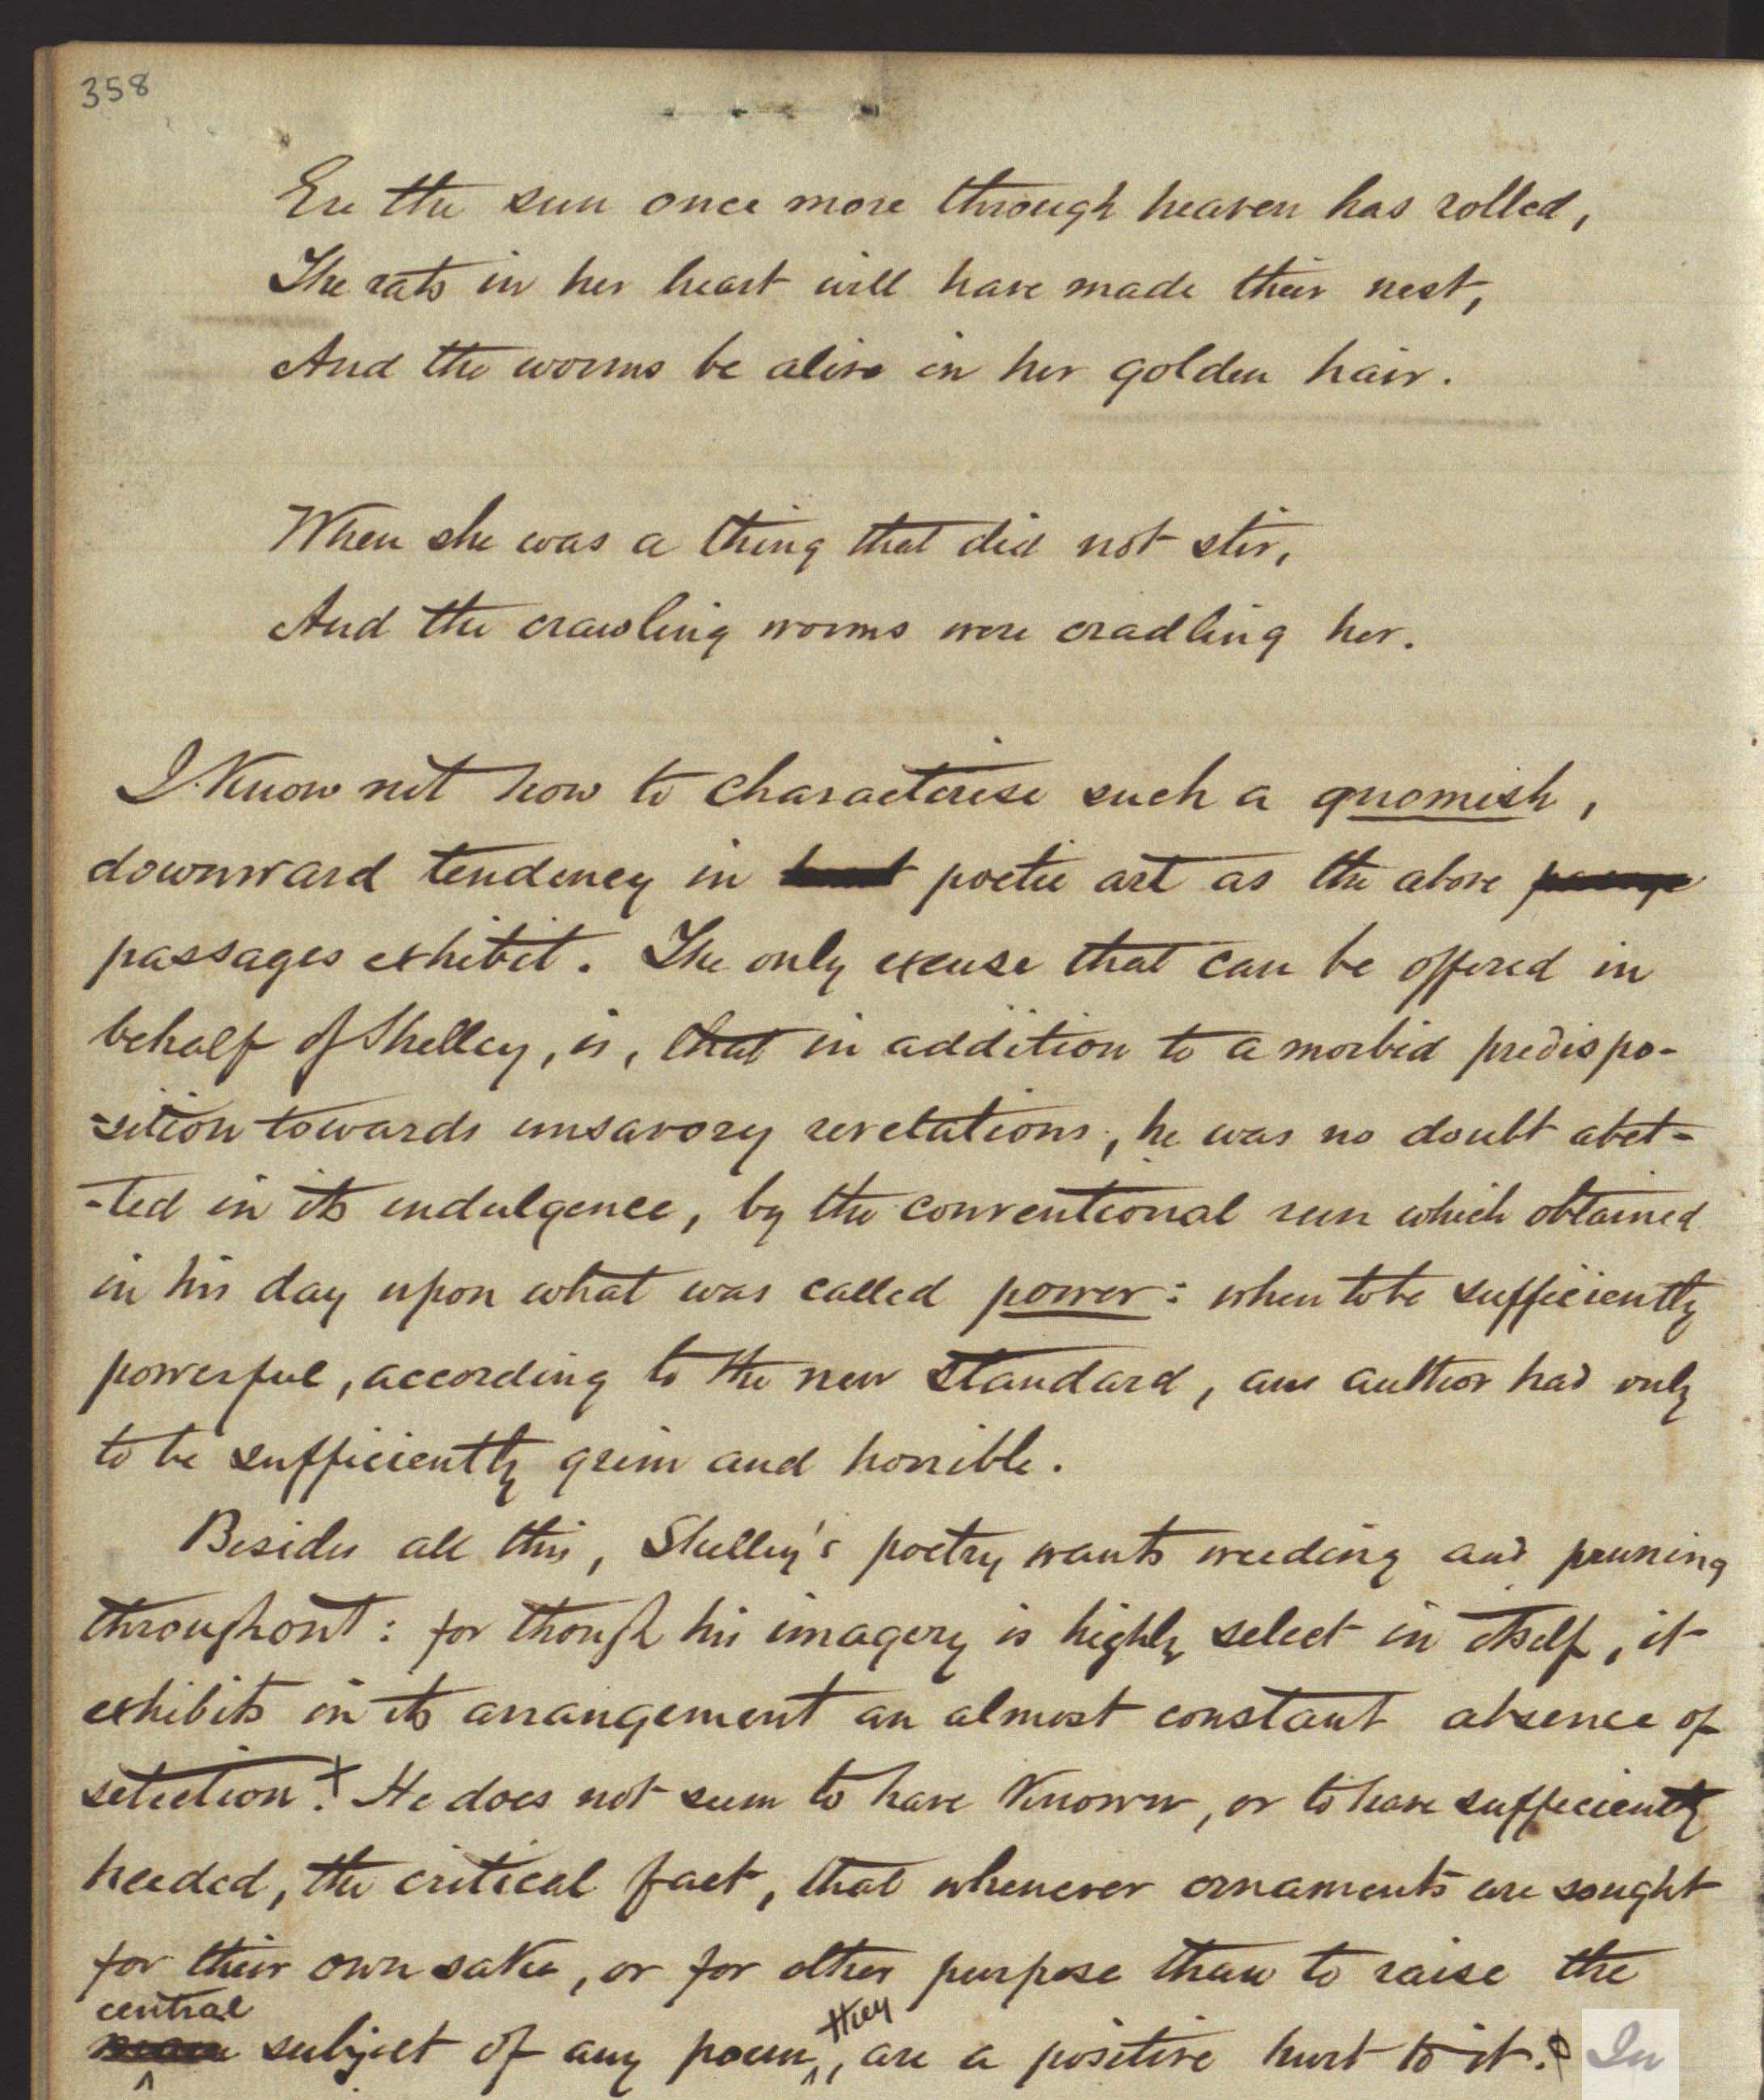 358
Ere the sun once more through heaven has rolled,
The rats in her heart will have made their nest,
And the worms be alive in her golden hair.
When she was a thing that did not stir,
And the crawling worms were cradling her.
I know not how to characterise such a gnomish,
downward tendency in poetic art as the above
passages exhibit. The only excuse that can be offered in
behalf of Shelley, is, that in addition to a morbid predispo-
-sition towards unsavory revelations, he was no doubt abet-
-ted in its indulgence, by the conventional run which obtained
in his day upon what was called power: when to be sufficiently
powerful, according to the new standard, an author had only
to be sufficiently grim and horrible.
Besides all this, Shelley's poetry wants weeding and pruning
throughout: for though his imagery is highly select in itself, it
exhibits in its arrangement an almost constant absence of
selection.+ He does not seem to have known, or to have sufficiently
heeded, the critical fact, that whenever ornaments are sought
for their own sake, or for other purpose than to raise the
central subject of any poem, they are a positive hurt to it. In